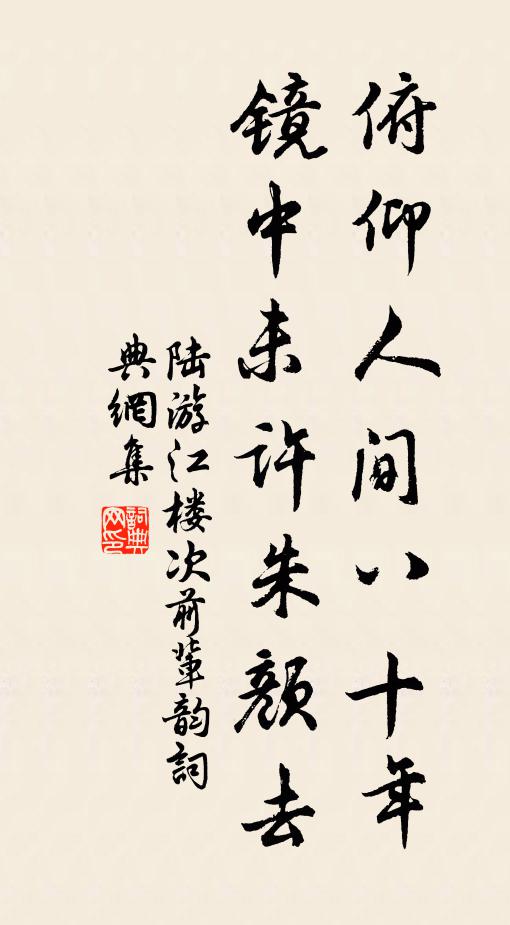 俯仰人间八十年
镜中未许朱颜去
陆游江楼次前辈韵词
典網集
詞典
网印